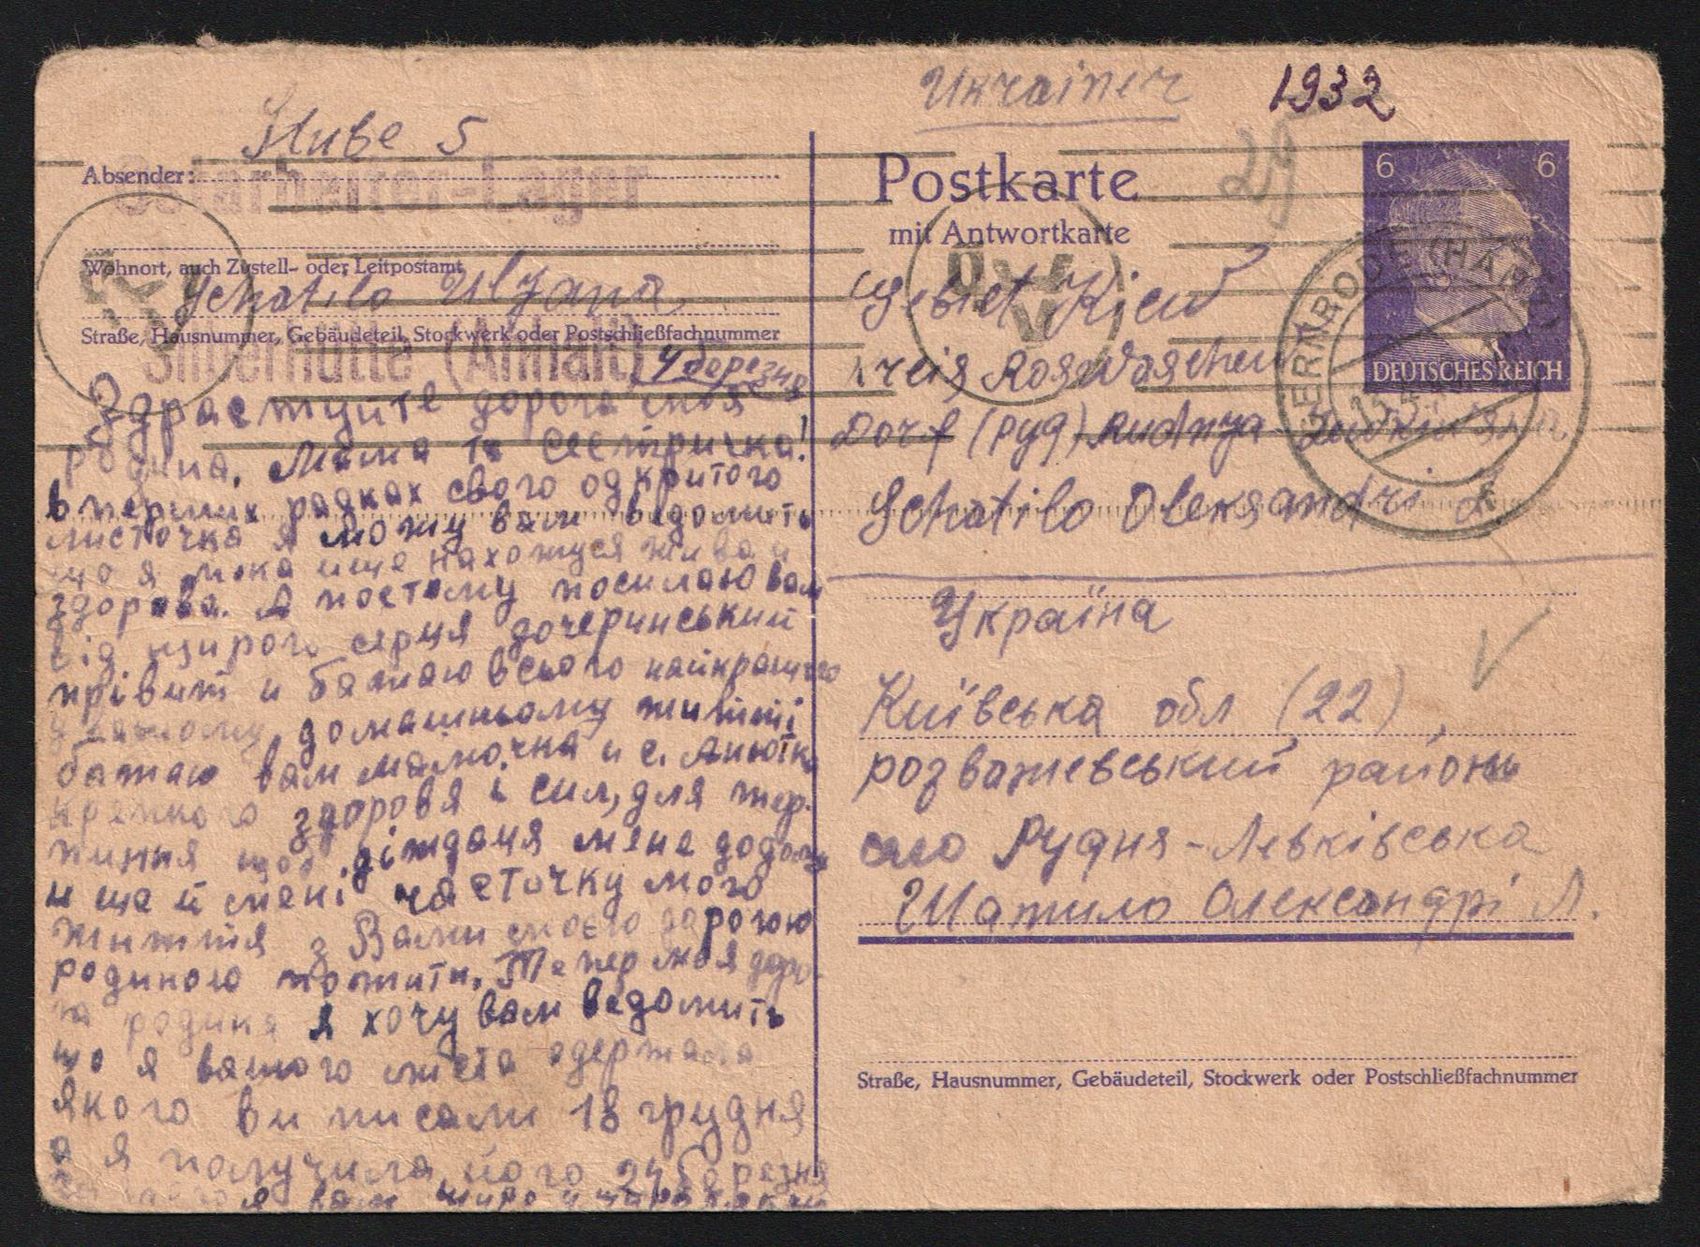 Ukrainer 1932
29
Stube 5
Absender:
Ostarbeiter-Lager
Wohnort, auch Zustell- oder Leitpostamt
Schatilo Uljana
Straße, Hausnummer, Gebäudeteil, Stockwerk oder Postschließfachnummer
Silberhütte (Anhalt)
Postkarte
mit Antwortkarte
6 6
DEUTSCHES REICH
GERNRODE (HARZ)
Gebiet Kiew
Kreis Roswaschew
Dorf (руд) Rudnya
Schatilo Oleksandri A
Україна
Київська обл (22),
розважевський район
село Рудня-Левківська
Шатило Олександрі Л.
Straße, Hausnummer, Gebäudeteil, Stockwerk oder Postschließfachnummer
4 березня
Здраствуйте дорога моя
родина. Мама та сестричка!
в перших рядках свого одкритого
листочка я можу вам ведомить
що я пока ище нахожуся жива и
здорова. А поетому посилаю вам
від щирого серця дочеринський
прівит и бажаю всього найкращего
у вашому домашньому житті
бажаю вам мамочка и с. Анютка
крепкого здоровя і сил, для тер-
пиння щоб діждаця мене додому
и ще й мені часточку мого
життя з Вами моєю дорогою
родиною прожити. Тепер моя доро-
га родина я хочу вам ведомить
що я вашого листа одержала
якого ви писали 18 грудня
а я получила його 24 березня
я вам щиро и щиро